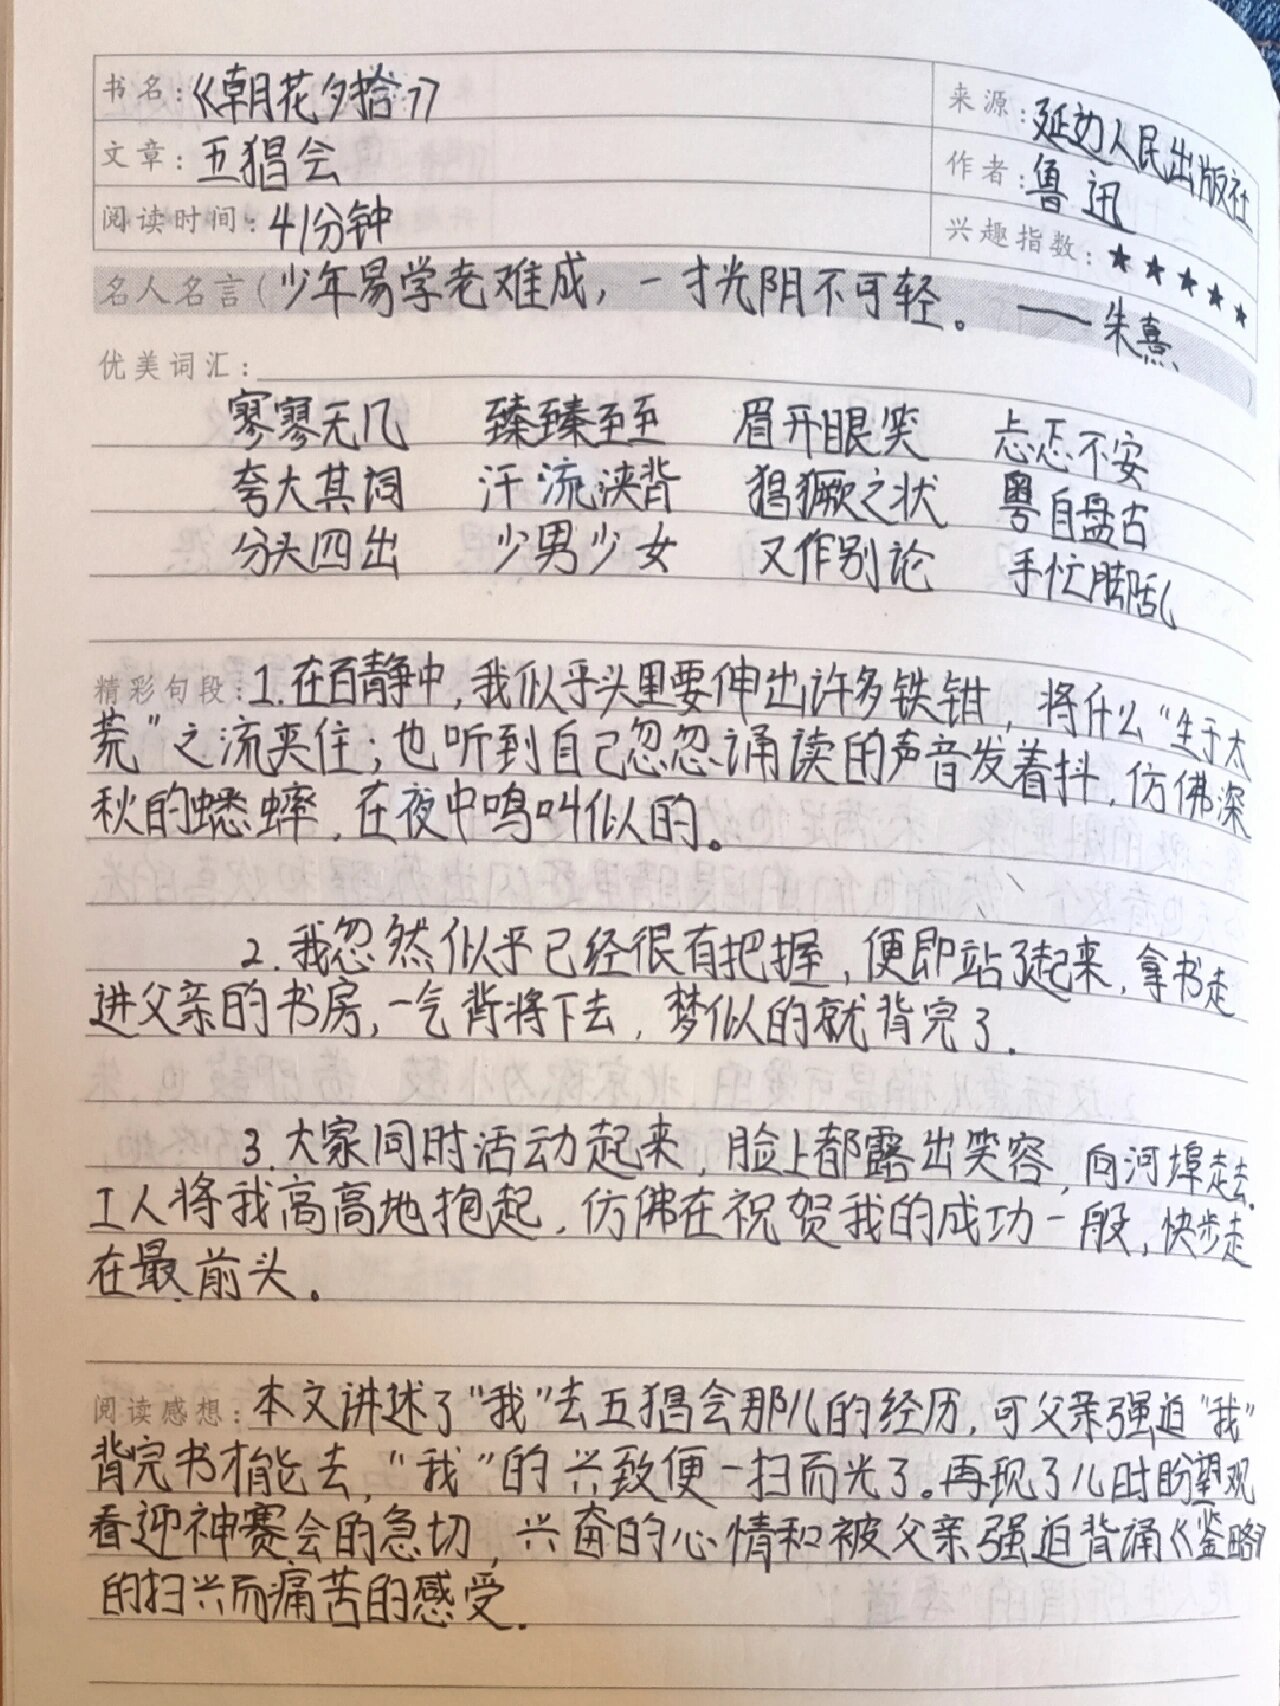 书名:《朝花夕拾》
来源:延边人民出版社
文章:五猖会
作者:鲁迅
阅读时间:41分钟
兴趣指数:★★★★★
名人名言(少年易学老难成,一寸光阴不可轻。——朱熹)
优美词汇:
寥寥无几 臻臻至至 眉开眼笑 忐忑不安
夸大其词 汗流浃背 猖獗之状 粤自盘古
分头四出 少男少女 又作别论 手忙脚乱
精彩句段:1.在百静中,我似乎头里要伸出许多铁钳,将什么“生于太
荒”之流夹住;也听到自己忽忽诵读的声音发着抖,仿佛深
秋的蟋蟀,在夜中鸣叫似的。
2.我忽然似乎已经很有把握,便即站了起来,拿书走
进父亲的书房,一气背将下去,梦似的就背完了.
3.大家同时活动起来,脸上都露出笑容,向河埠走去.
工人将我高高地抱起,仿佛在祝贺我的成功一般,快步走
在最前头.
阅读感想:本文讲述了“我”去五猖会那儿的经历,可父亲强迫“我”
背完书才能去,“我”的兴致便一扫而光了。再现了儿时盼望观
看迎神赛会的急切,兴奋的心情和被父亲强迫背诵《鉴略》
的扫兴而痛苦的感受.